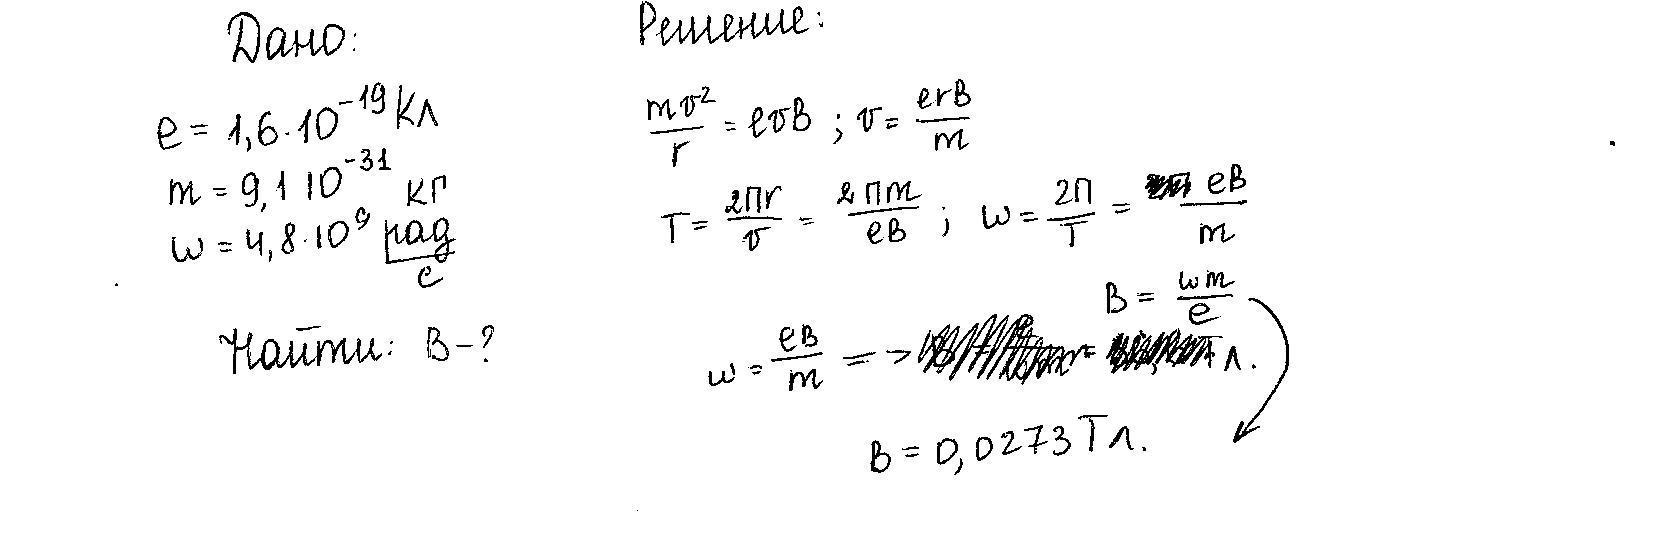 Дано:
e = 1,6·10⁻¹⁹ Кл
m = 9,1 10⁻³¹ кг
ω = 4,8·10⁹ рад/с
Найти: B-?
Решение:
mv²/r = evB ; v = erB/m
T = 2πr/v = 2πm/eB ; ω = 2π/T = eB/m
B = ωm/e
ω = eB/m => Тл.
B = 0,0273 Тл.